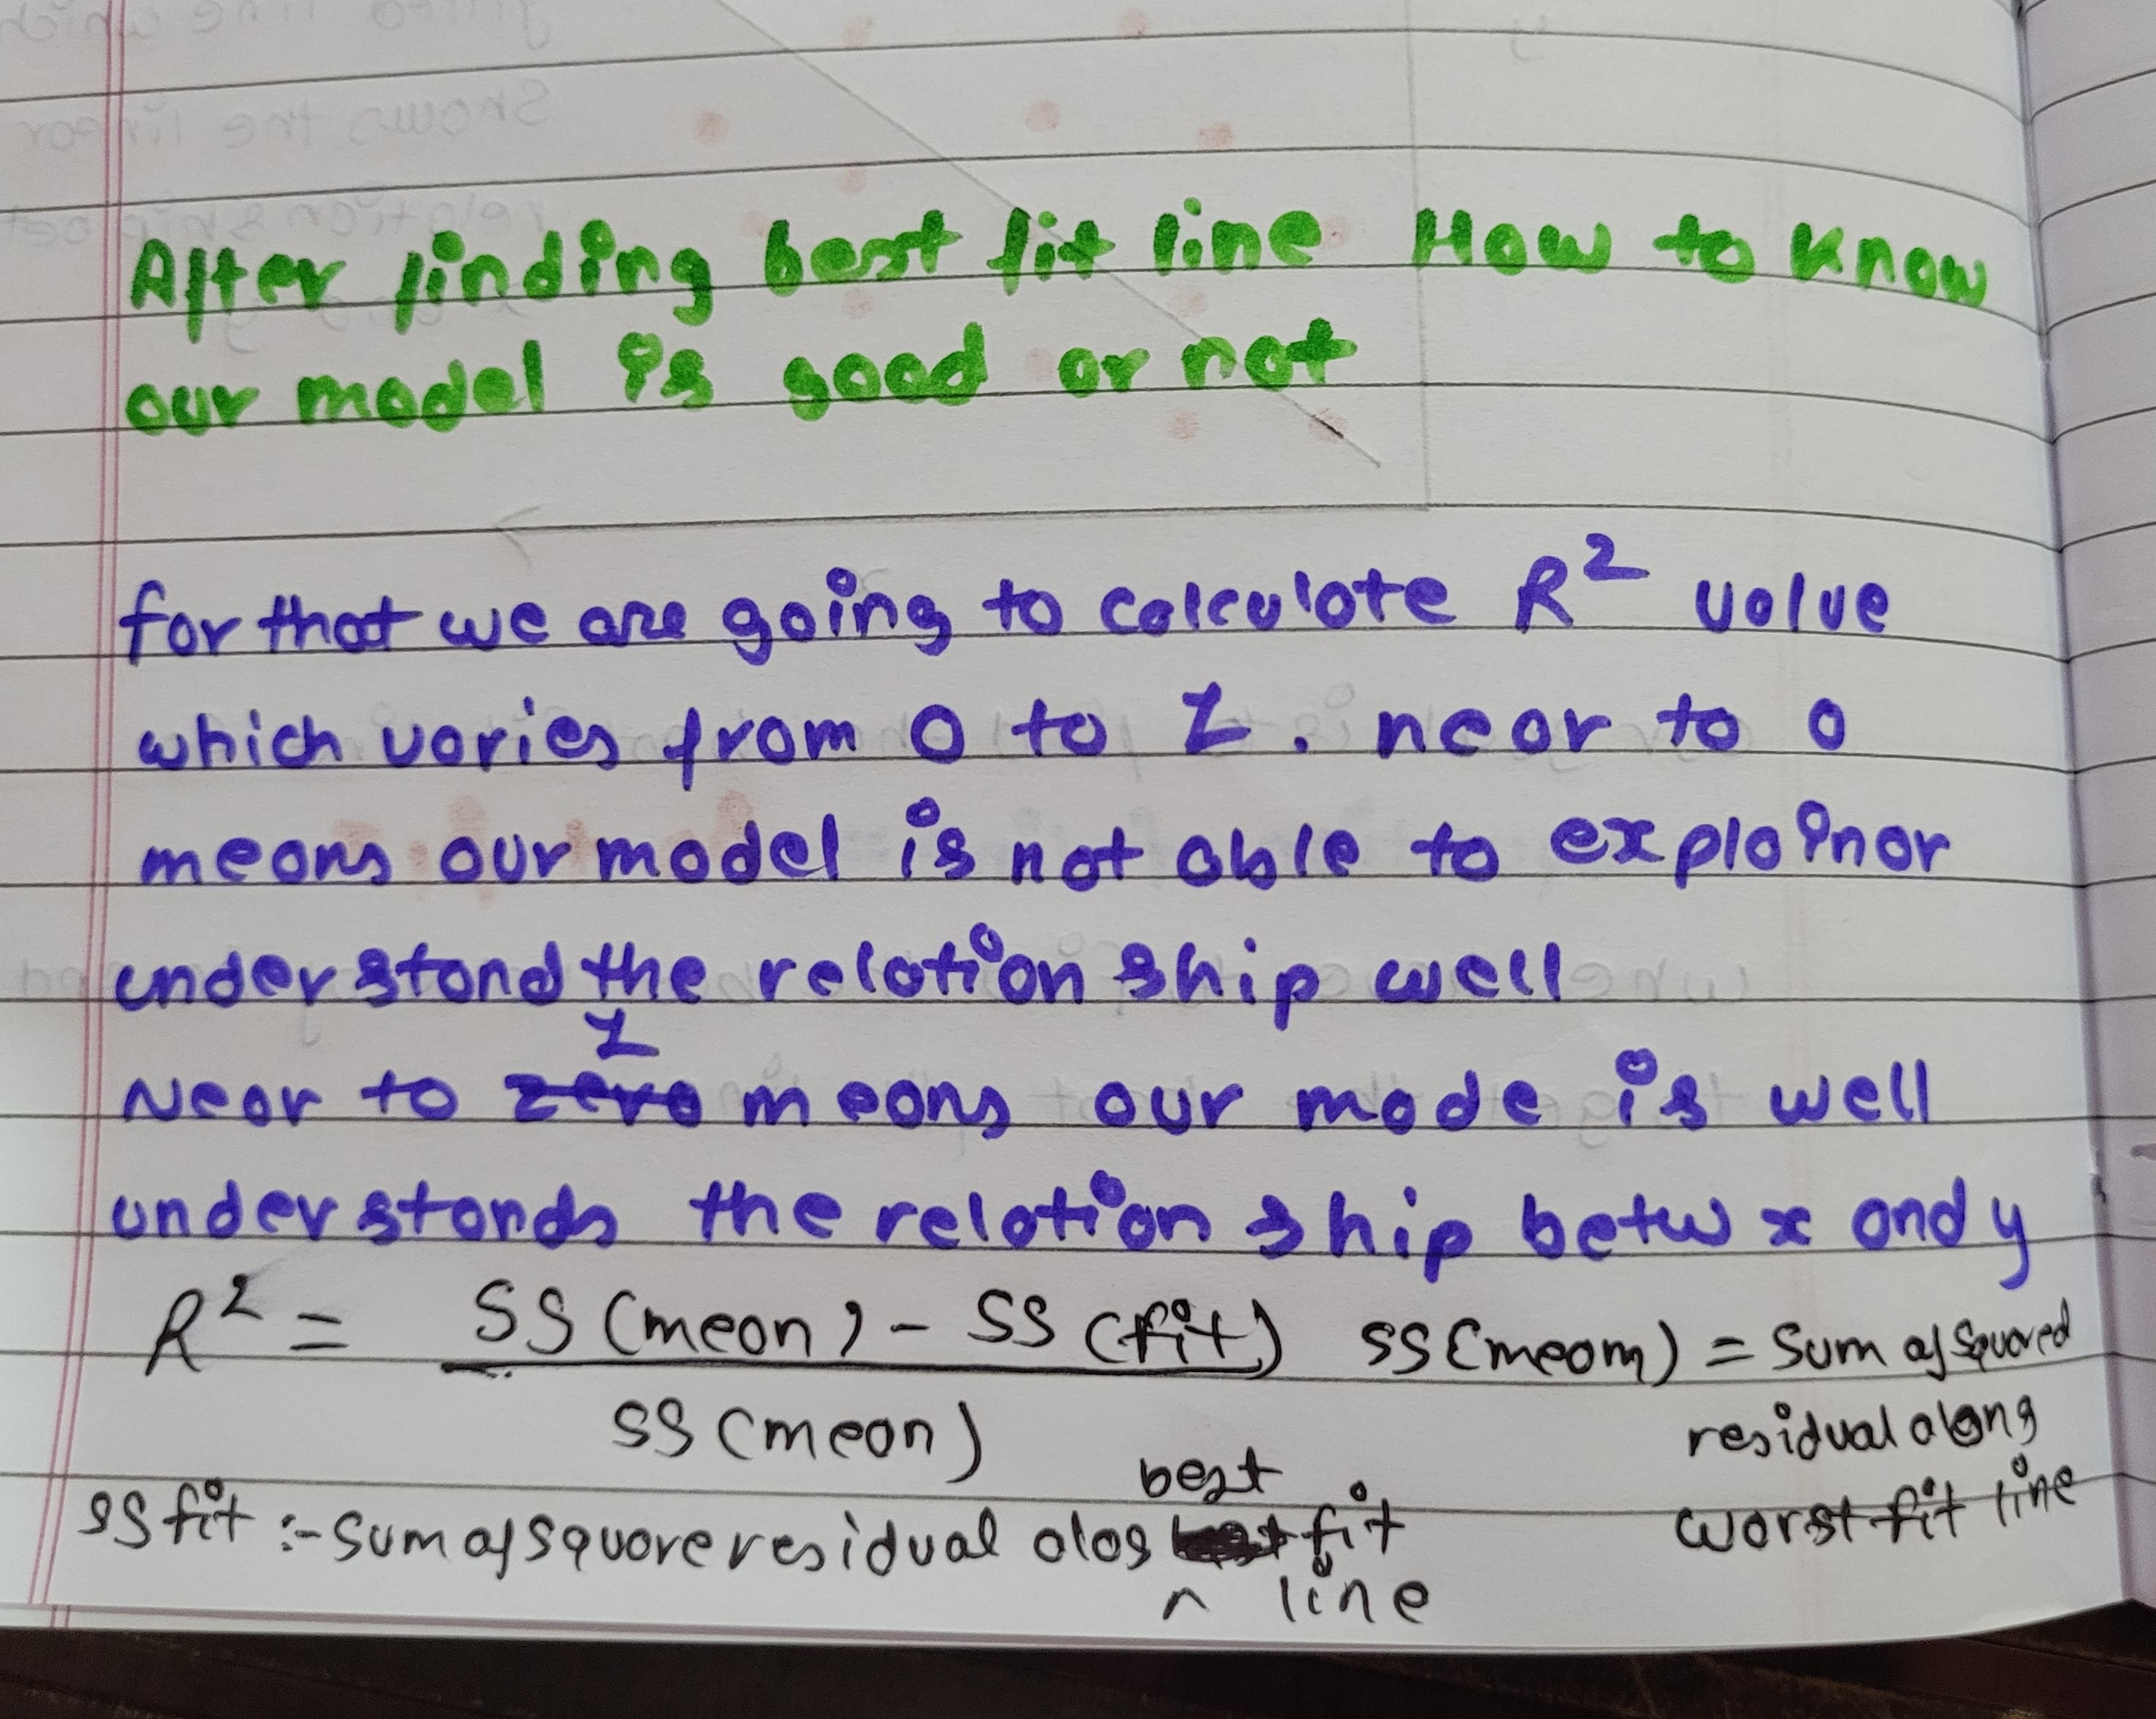 After finding best fit line How to know
our model is good or not
for that we are going to calculate R² value
which varies from 0 to 1. near to 0
means our model is not able to explain or
understand the relation ship well
Near to zero 1 means our mode is well
understands the relation ship betw x and y
R² = SS (mean) - SS (fit)
SS (mean)
SS (meam) = Sum of Squared
residual along
worst fit line
SS fit :- Sum of square residual alog best fit
line